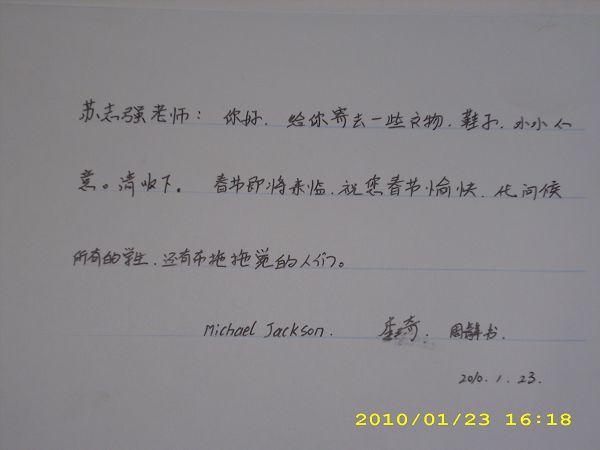 苏志强老师：你好．给你寄去一些衣物．鞋子．小小心
意。请收下。 春节即将来临．祝您春节愉快．代问候
所有的学生．还有布拖拖觉的人们。
Michael Jackson.
2010.1.23.
2010/01/23 16:18